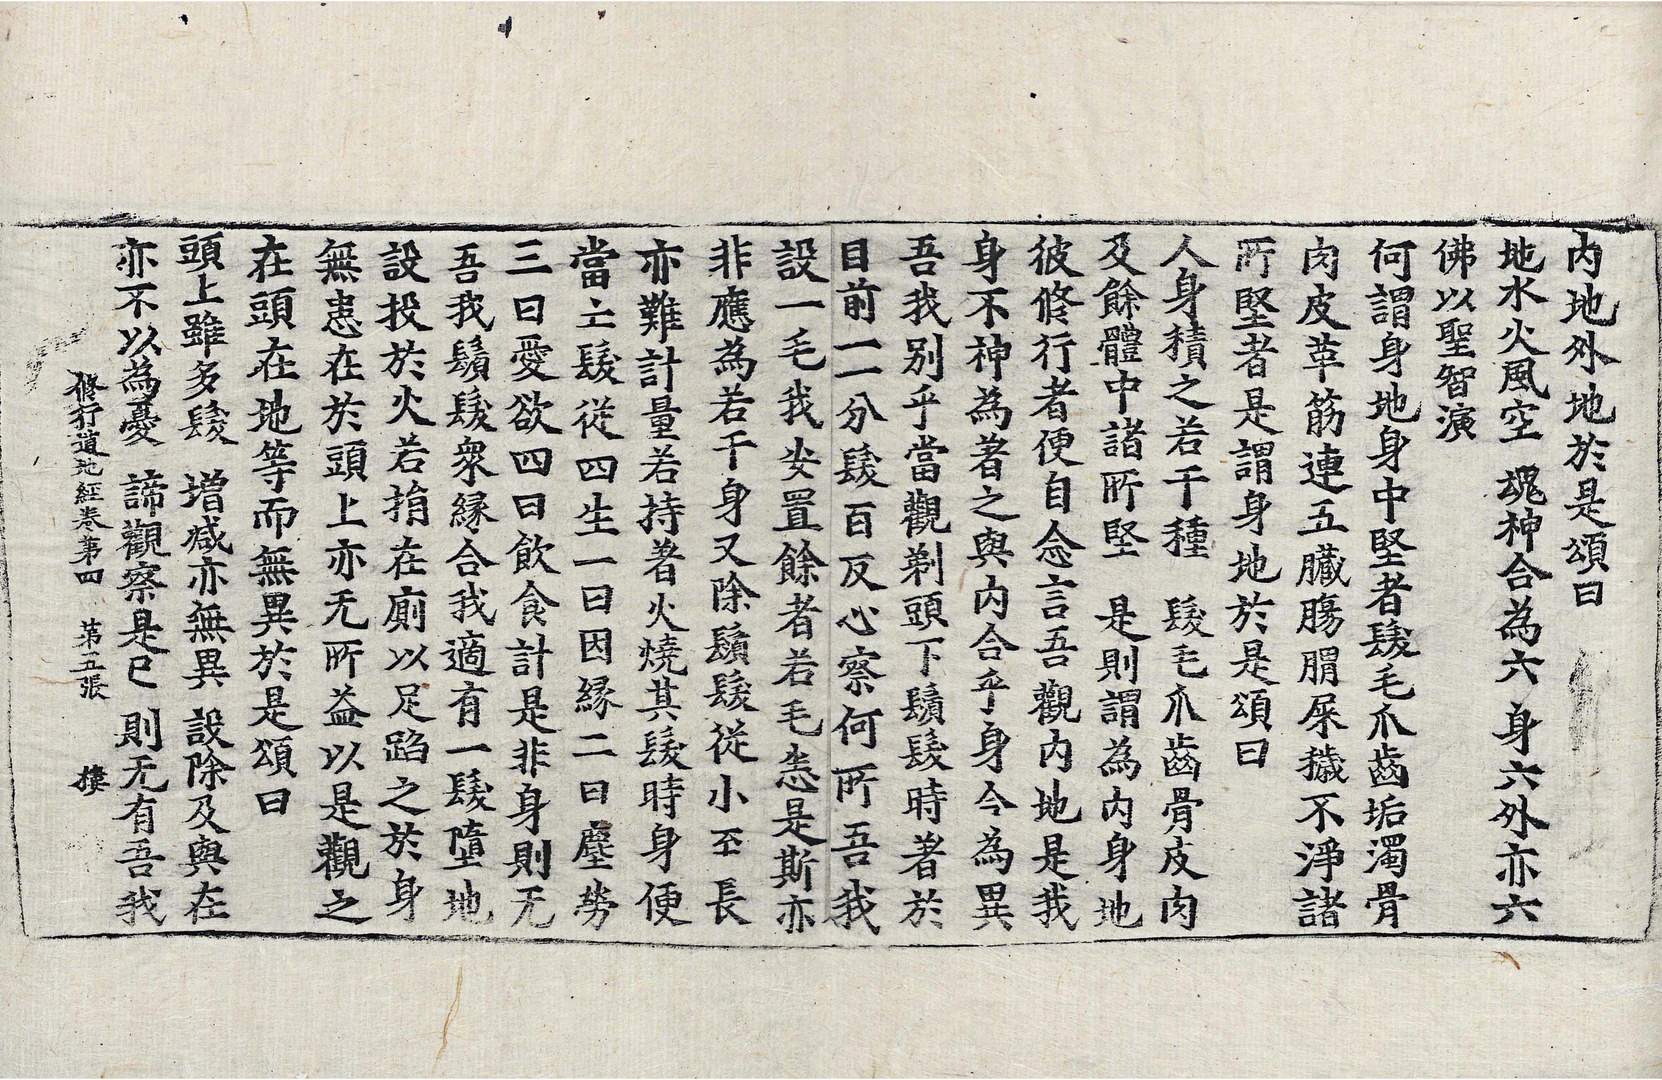 内地外地於是頌曰
地水火風空　魂神合為六　身六外亦六
佛以聖智演
何謂身地身中堅者髮毛爪齒垢濁骨
肉皮革筋連五臟腸胃屎穢不淨諸
所堅者是謂身地於是頌曰
人身積之若干種　髮毛爪齒骨皮肉
及餘體中諸所堅　是則謂為內身地
彼修行者便自念言吾觀內地是我
身不神為著之與內合乎身今為異
吾我別乎當觀剃頭下鬚髮時著於
目前一一分髮百反心察何所吾我
設一毛我安置餘者若毛悉是斯亦
非應為若干身又除鬚髮從小至長
亦難計量若持著火燒其髮時身便
當亡髮從四生一曰因緣二曰塵勞
三曰愛欲四曰飲食計是非身則无
吾我鬚髮衆緣合我適有一髮墮地
設投於火若捐在廁以足蹈之於身
無患在於頭上亦无所益以是觀之
在頭在地等而無異於是頌曰
頭上雖多髮　增减亦無異　設除及與在
亦不以為憂　諦觀察是已　則无有吾我
修行道地經卷第四　第五張　樓